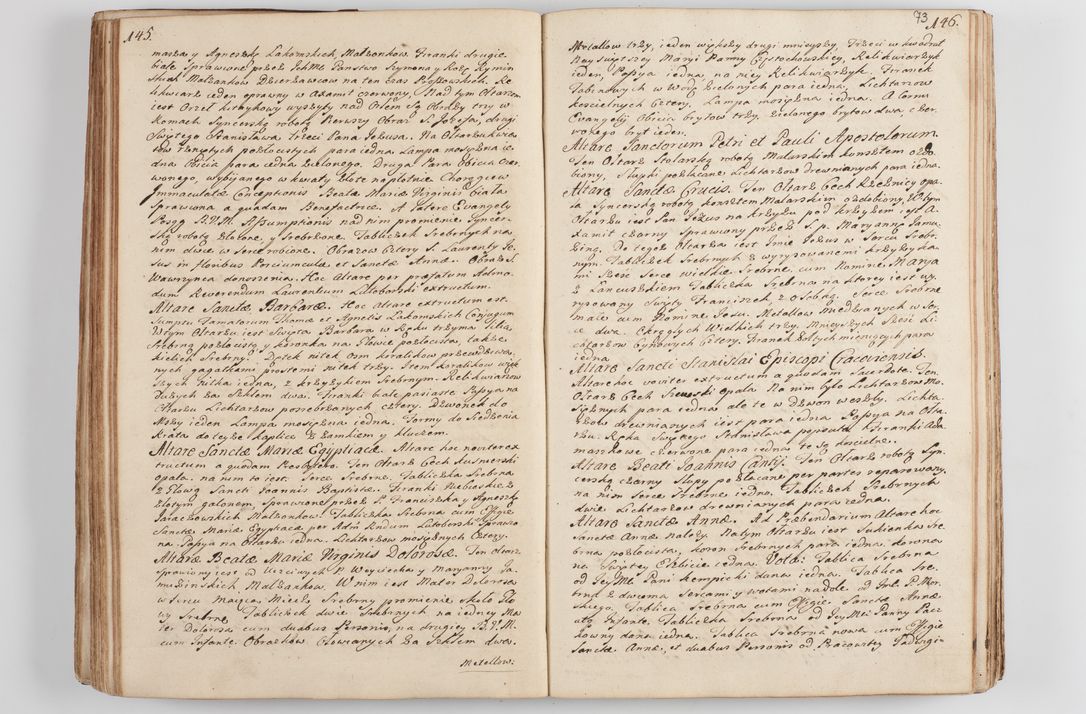 145.
masza y Agneszkę Lakomskich Małzonkow. Firanki drugie
białe Sprawione przez JchMć Państwo Szymona y Rozę Rymin
skich Małzonkow Dzierzawcow na ten czas
likwiarz ieden oprawny w Axamit czerwony, Nad tym Ołtarzem
iest Orzeł wyszyty nad Orłem Są Obrazy trzy w
Ramach Syncerską robotą Pierwszy Obraz S. Jozefa, drugi
Swiętego Stanisława, trzeci Pana Jezusa. Na Ołtarzu
para iedna Lampa mosięzna ie
dna Obicia para iedna zielonego. Druga Para Obicia czer
wonego, wybijanego w kwiaty złote na płotnie Chorągiew
Immaculatæ Conceptionis Beatæ Mariæ Virginis biała
Sprawiona a quadam Benefactrice. A latere Evangely
B.V.M. Assumptionis nad nim promienie Syncer
ską robotą złozone, y srebrzone. Tabliczek Srebrnych na
nim dwie w serce robione. Obrazow cztery S. Laurenty Je
sus in floribus Porciuncula et Sanctæ Annæ. Obraz S.
Wawrzynca do noszenia. Hoc Altare per præfatum Admo
dum Reverendum Laurentium Lutoborski extructum.
Altare Sanctæ Barbaræ. Hoc Altare extructum est.
Sumptu Famatorum Thomæ et Agnetis Lakomskich Conjugum
W tym Ołtarzu iest Swięta Barbara w Ręku trzyma Lilią
Srebrną pozłocistą y koronka na Głowie pozłocista, takze
kielich Srebrny. Dętek nitek Osm koralikow przewodzo
nych gagatkami prostemi nitek trzy. Item koralikow więk
szych nitka iedna, z krzyzykiem Srebrnym. Relikwiarzow
duzych za Szkłem dwa. Firanki białe pasiaste Papya na
Ołtarzu Lichtarzow posrebrzanych cztery. Dzwonek do
Mszy ieden Lampa mosięzna iedna. Formy do Siedzenia
Krata do teyze kaplicy z zamkiem y kluczem.
Altare Sanctæ Mariæ Egyptiacæ. Altare hoc noviter ex
tructum a quodam Presbytero. Ten Ołtarz Cech Kusnierski
opala. na nim to iest: Serce Srebrne. Tabliczka Srebrna
z Głową Sancti Joannis Baptistæ. Firanki Niebieskie z
złotym galonem, Sprawione przez S. Franciszka y Agneszkę
Jaraczewskich Małzonkow. Tabliczka Srebrna cum Effigie
Sanctæ Mariæ Egyptiacæ per Adm. Rndum Lutoborski Sprawio
na. Papya na Ołtarzu iedna. Lichtarzow mosięznych Cztery.
Altare Beatæ Mariæ Virginis Dolorosæ. Ten Ołtarz
Sprawiony iest od Uczciwych P. Woyciecha y Maryanny Ja
muzinskich Małzonkow. W nim iest Mater Dolorosa
w Sercu maiąca, Miecz Srebrny promienie około Gło
wy Srebrne Tabliczek dwie Srebrnych na iedney Ma
ter Dolorosa cum duabus Personis, na drugiey B.V.M.
cum Infante. Obrazkow Oliwanych za Szkłem dwa.
Metallow.
73
146.
Metallow trzy, ieden większy drugi mnieyszy, Trzeci w kwadrat
Nayswiętszey Maryi Panny Częstochowskiey, Relikwiarzyk
ieden, Papya iedna, na niey Relikwiarzyk. Firanek
Tabinowych w Wodę zielonych para iedna. Lichtarzow
koscielnych Cztery, Lampa mosięzna iedna. A Cornu
Evangelij Obicia brytow trzy, zielonego brytow dwa, czer
wonego bryt ieden.
Altare Sanctorum Petri et Pauli Apostolorum
Ten Ołtarz Stolarską robotą Malarskim kunsztem ozdo
biony, Słupki pozłacane Lichtarzow drewnianych para iedna.
Altare Sanctæ Crucis. Ten Ołtarz Cech Rzeźnicy opa
la Syncerską robotą konsztem Malarskim ozdobiony, W tym
Ołtarzu iest Pan Jezus na krzyzu pod krzyzem iest A
xamit czarny Sprawiony przez S. p. Maryannę
Do tego Ołtarza iest Imie Jezus w Sercu Srebr
nym. Tabliczek Srebrnych z wyrysowanemi krzyzyka
mi Szesc Serce wielkie Srebrne, cum Nomine Marya
z Lancuszkiem Tabliczka Srebrna na ktorey iest wy
rysowany Swięty Franciszek, z Osobą. Serce Srebrne
małe cum Nomine Jesu. Metallow miedzianych w Ser
ce dwa. Okrągłych Wielkich trzy. Mnieyszych Szesć Li
chtarzow Cynowych Cztery. Firanek zołtych mieniących para
iedna.
Altare Sancti Stanislai Episcopi Cracoviensis.
Altare hoc noviter extructum a quodam Sacerdote. Ten
Ołtarz Cech Szewski opala. Na nim było Lichtarzow Mo
sięznych para iedna ale te w dzwon weszły. Lichta
rzow drewnianych iest para iedna Papya na Ołta
rzu. Ręka Swiętego Stanisława popsuta Firanki Ada
maszkowe czerwone para iedna te są koscielne.
Altare Beati Joannis Cantij. Ten Ołtarz robotą Syn
cerską czarny Słupy pozłacane per partes reparowany,
na nim Serce Srebrne iedno, Tabliczek Srebrnych
dwie Lichtarzow drewnianych para iedna.
Altare Sanctæ Annæ. Ad Præbendarium Altare hoc
Sanctæ Annæ należy. Na tym Ołtarzu iest Sukienka Sre
brna pozłocista, koron Srebrnych para iedna, korona
na Swiętey Elzbiecie iedna. Vota: Tablica Srebrna
od Jey Mć Pani Kempicki dana iedna. Tablica Sre
brna z dwiema Sercami y wotami na dole. od Imć P. Mor
skiego. Tablica Srebrna cum Effigie, Sanctæ Annæ
cum Infante. Tabliczka Srebrna od Jey Mći Panny Racz
kowny dana iedna. Tablica Srebrna nowa cum Effigie
Sanctæ Annæ, et duabus Personis od Pracowitey Jadwigi